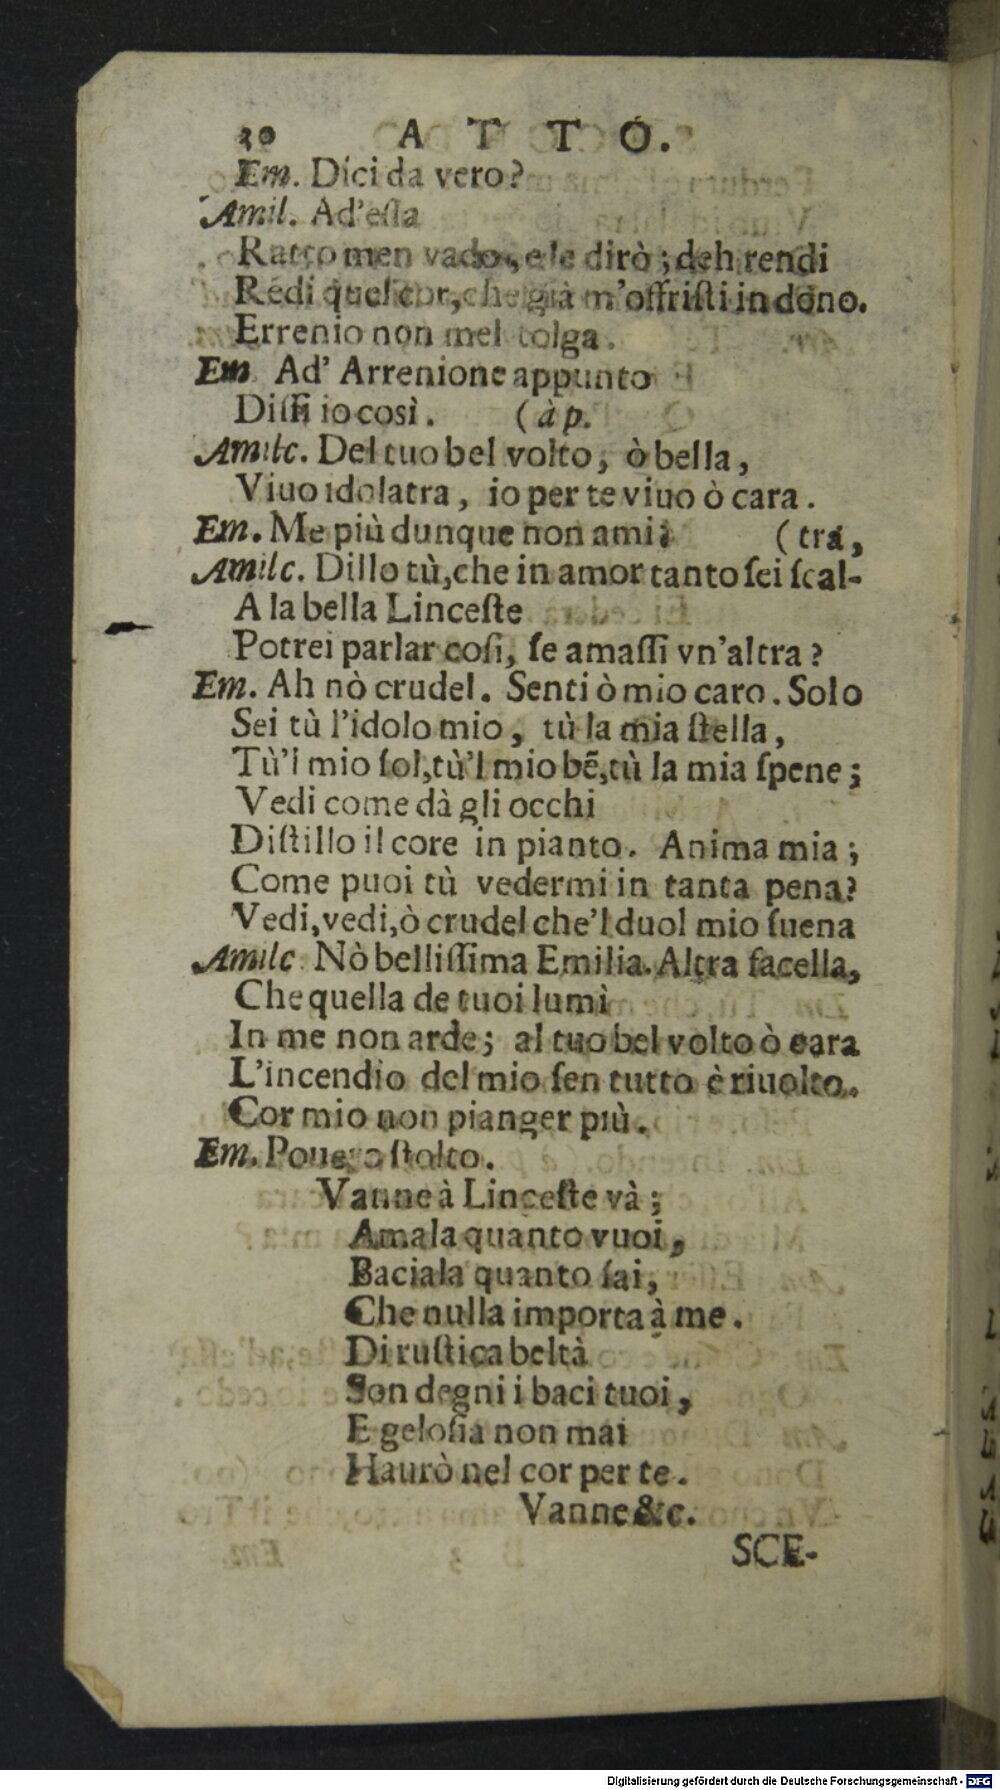 30 ATTO.
Em. Dici da vero?
Amil. Ad'essa
Ratto men vado, e le dirò; deh rendi
Rēdi quel cor, che già m'offristi in dono.
Errenio non mel tolga.
Em Ad' Arrenione appunto
Dissi io così. (à p.
Amilc. Del tuo bel volto, ò bella,
Viuo idolatra, io per te viuo ò cara.
Em. Me più dunque non ami? (tra,
Amilc. Dillo tù, che in amor tanto sei scal-
A la bella Linceste
Potrei parlar così, se amassi vn'altra?
Em. Ah nò crudel. Senti ò mio caro. Solo
Sei tù l'idolo mio, tù la mia stella,
Tù'l mio sol, tù'l mio bē, tù la mia spene;
Vedi come dà gli occhi
Distillo il core in pianto. Anima mia;
Come puoi tù vedermi in tanta pena?
Vedi, vedi, ò crudel che'l duol mio suena
Amilc. Nò bellissima Emilia. Altra facella,
Che quella de tuoi lumi
In me non arde; al tuo bel volto ò cara
L'incendio del mio sen tutto è riuolto.
Cor mio non pianger più.
Em. Pouero stolto.
Vanne à Linceste và;
Amala quanto vuoi,
Baciala quanto sai,
Che nulla importa à me.
Di rustica beltà
Son degni i baci tuoi,
E gelosia non mai
Haurò nel cor per te.
Vanne &c.
SCE-
Digitalisierung gefördert durch die Deutsche Forschungsgemeinschaft - DFG